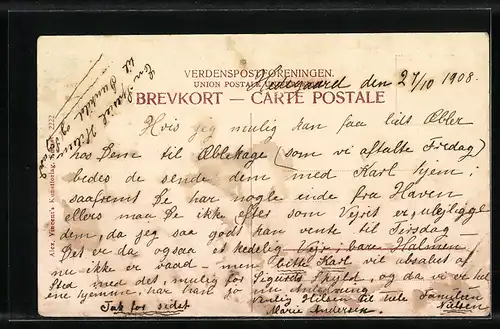 VERDENSPOSTFORENINGEN.
UNION POSTALE
den 27/10 1908.
BREVKORT – CARTE POSTALE
Hvis jeg mulig kan faa lidt Æbler
hos Dem til Æblekage (som vi aftalte Fredag)
bedes de sende dem med Karl hjem;
saafremt De har nogle inde fra Haven
ellers maa De ikke efter som Vejret er, ulejlige
dem, da jeg saa godt kan vente til Tirsdag
Det er da ogsaa et kedelig Vejr, bare Halmen
nu ikke er vaad – men Karl vil absolut af
Sted med det, mulig for Sigurds Skyld, og da vi er hel
ene hjemme, har han jo
Tak for sidst
Venlig Hilsen til hele Familien
Marie Andersen.
Alex. Vincent's Kunstforlag, 2222
En Hilsen
til
og